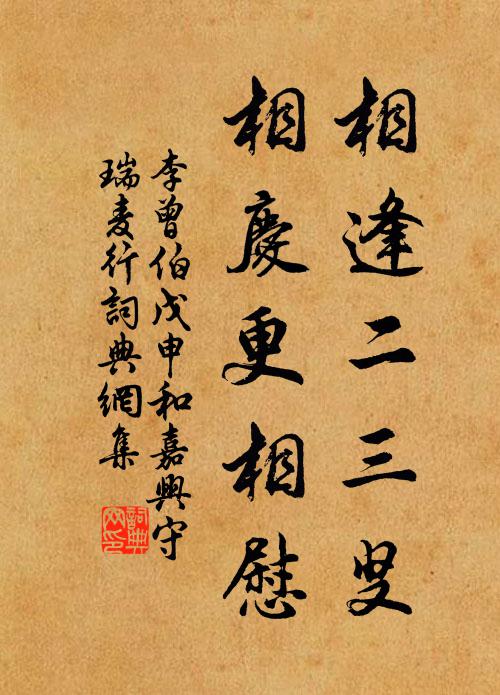 相逢二三叟
相慶更相慰
李曾伯戊申和嘉興守
瑞麦行詞典網集